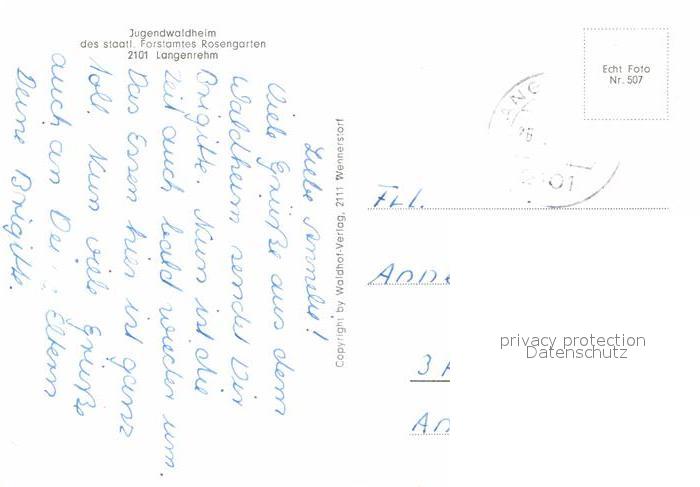 Jugendwaldheim
des staatl. Forstamtes Rosengarten
2101 Langenrehm
Liebe Annelie!
Viele Grüße aus dem
Waldheim sendet Dir
Brigitte. Nun ist die
Zeit auch bald wieder um.
Das Essen hier ist ganz
toll. Nun viele Grüße
auch an Dei Eltern
Deine Brigitte.
Copyright by Waldhof-Verlag, 2111 Wennerstorf
Echt Foto
Nr. 507
ANG
Frl.
Anne
3
An
privacy protection
Datenschutz